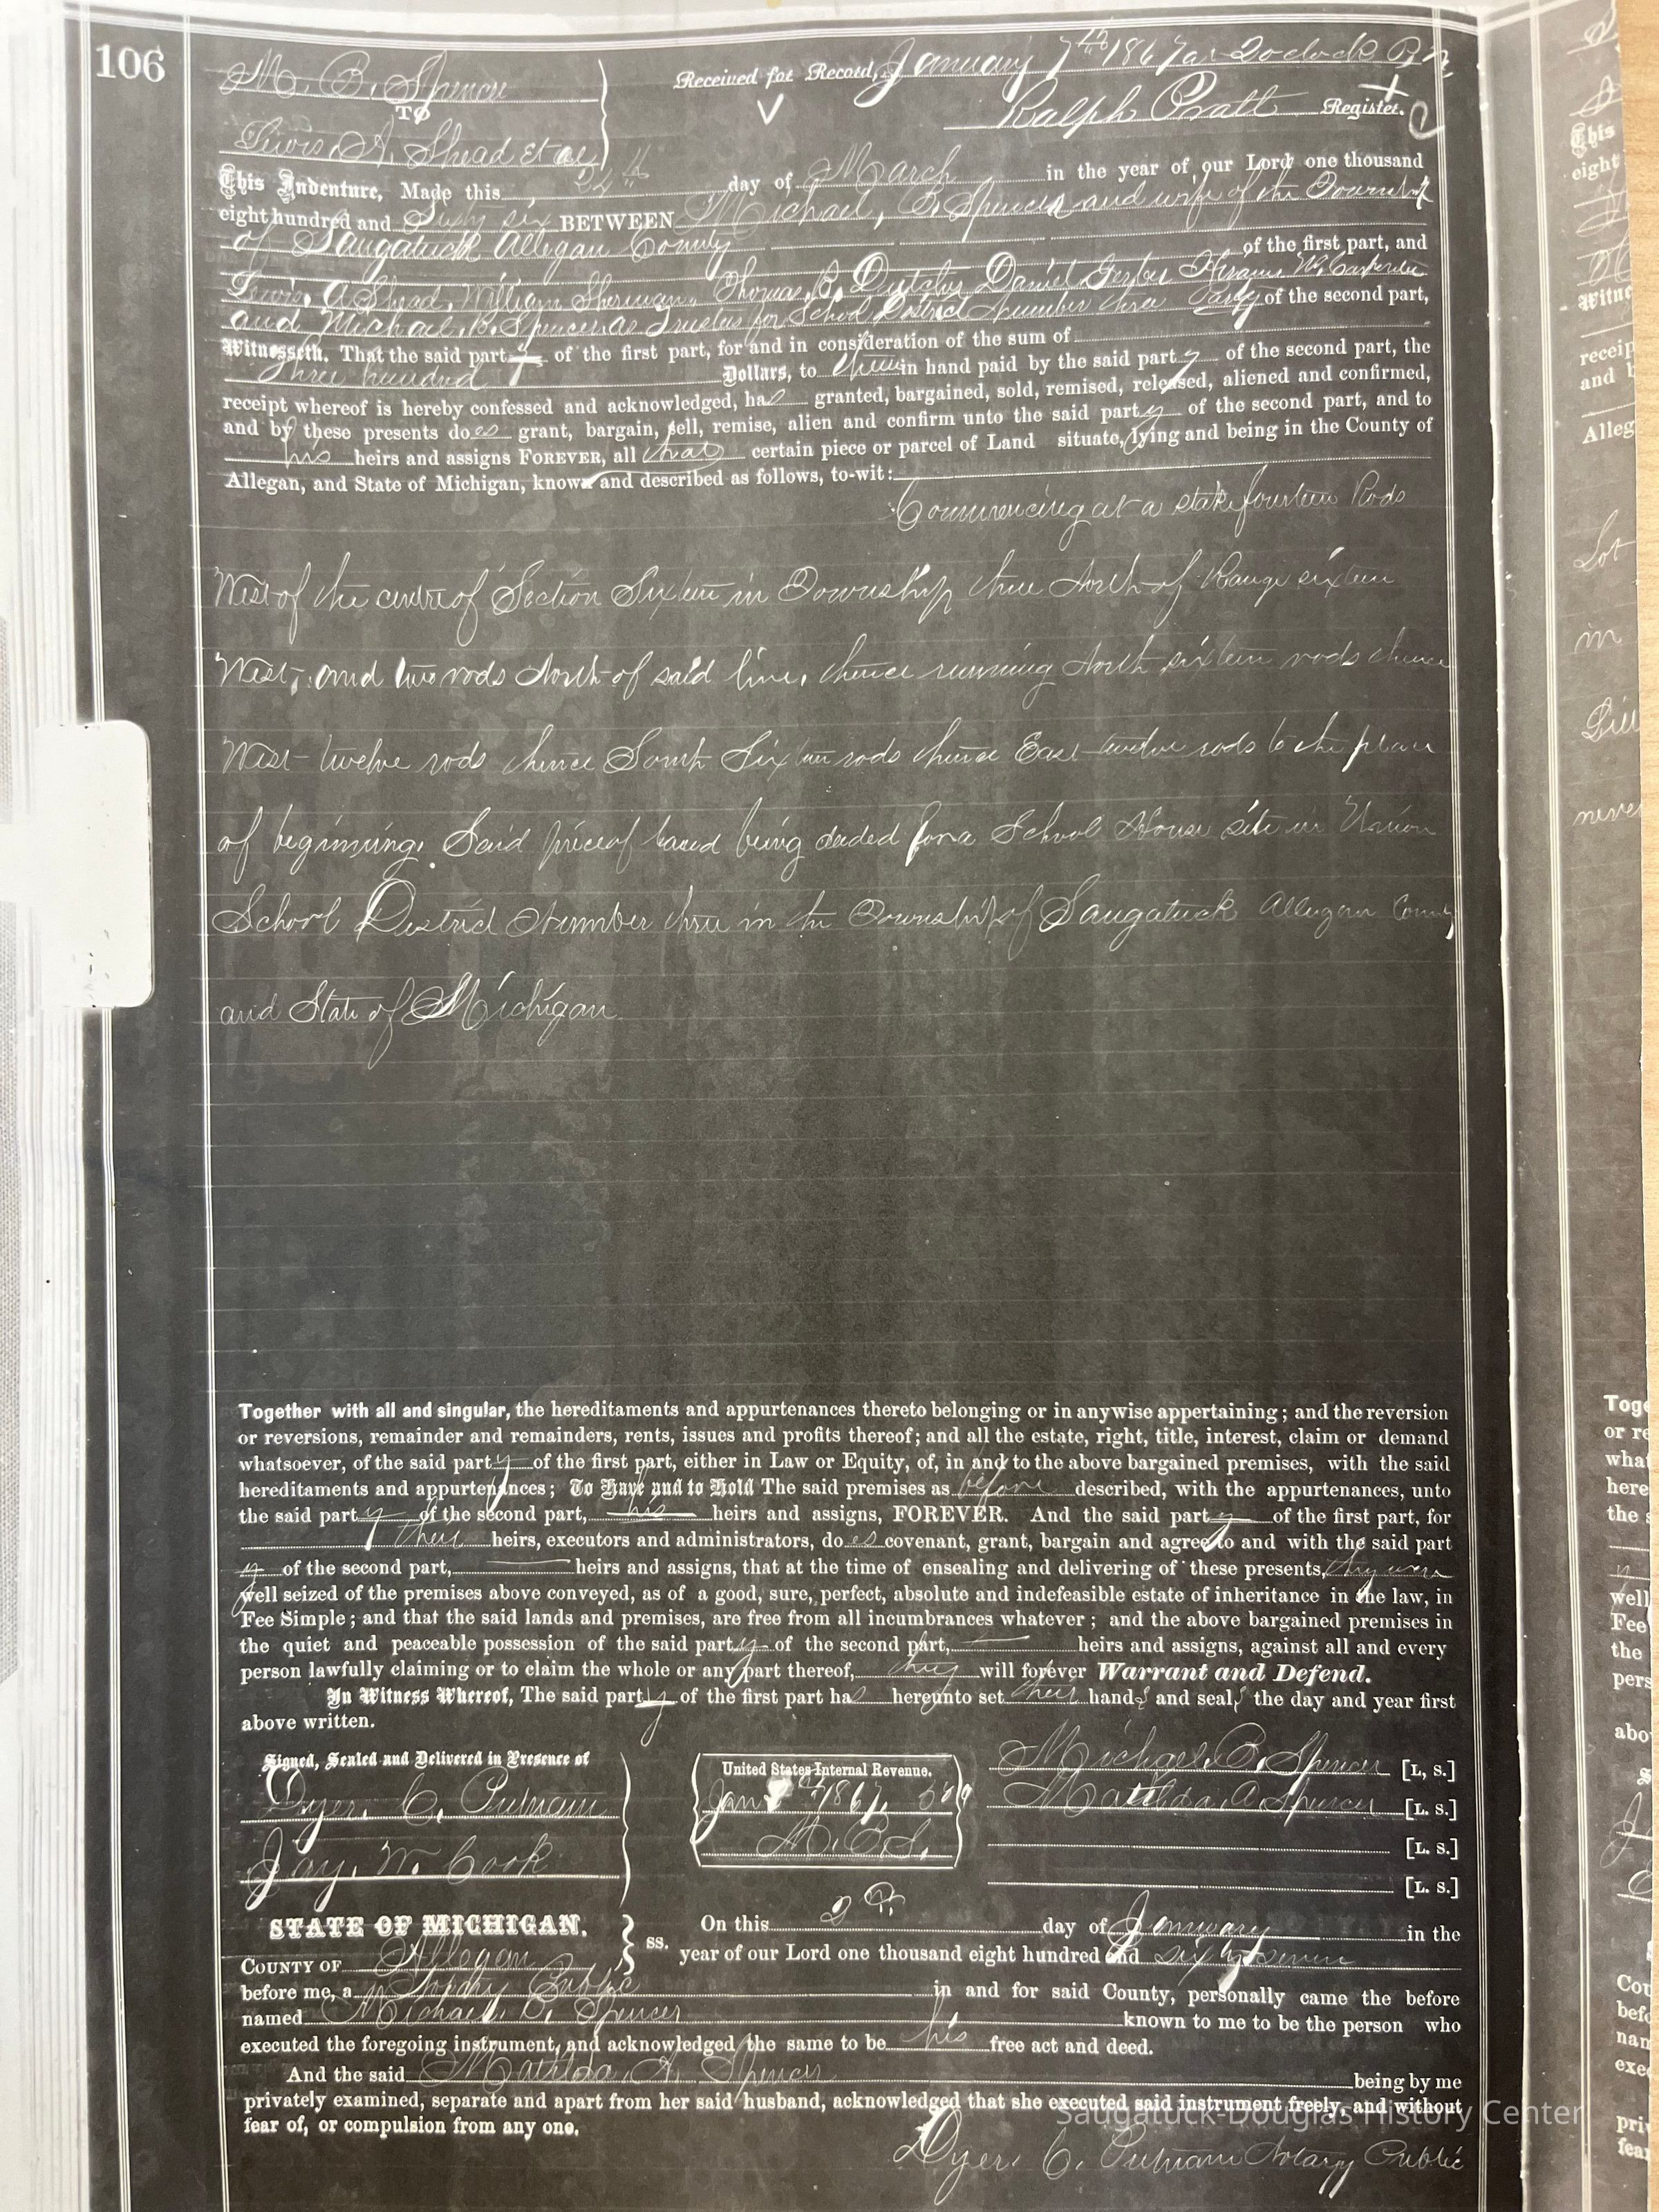 106
M. B. Spencer
TO
Lewis A. Shead et al
Received for Record, January 7th 1867 at 2 oclock P M
Ralph Pratt Register.
This Indenture, Made this 24th day of March in the year of our Lord one thousand
eight hundred and Sixty six BETWEEN Michael, B. Spencer and wife of the Township
of Saugatuck Allegan County of the first part, and
Lewis, A Shead, William Sherman, Thomas, B, Dutcher Daniel Gerber Hiram W. Carpenter
and Michael, B. Spencer, as Trustees for School District Number three Party of the second part,
Witnesseth. That the said part y of the first part, for and in consideration of the sum of
Three hundred Dollars, to them in hand paid by the said part y of the second part, the
receipt whereof is hereby confessed and acknowledged, has granted, bargained, sold, remised, released, aliened and confirmed,
and by these presents does grant, bargain, sell, remise, alien and confirm unto the said party of the second part, and to
his heirs and assigns FOREVER, all that certain piece or parcel of Land situate, lying and being in the County of
Allegan, and State of Michigan, known and described as follows, to-wit:
Commencing at a stake fourteen Rods
West of the centre of Section Sixteen in Township three North of Range sixteen
West, and two rods North of said line, thence running North sixteen rods thence
West twelve rods thence South Sixteen rods thence East twelve rods to the place
of beginning. Said piece of land being deeded for a School House site in Union
School District Number three in the Township of Saugatuck Allegan County
and State of Michigan
Together with all and singular, the hereditaments and appurtenances thereto belonging or in anywise appertaining; and the reversion
or reversions, remainder and remainders, rents, issues and profits thereof; and all the estate, right, title, interest, claim or demand
whatsoever, of the said part y of the first part, either in Law or Equity, of, in and to the above bargained premises, with the said
hereditaments and appurtenances; To Have and to Hold The said premises as before described, with the appurtenances, unto
the said part y of the second part, his heirs and assigns, FOREVER. And the said part y of the first part, for
their heirs, executors and administrators, does covenant, grant, bargain and agree to and with the said part
y of the second part, heirs and assigns, that at the time of ensealing and delivering of these presents, they were
well seized of the premises above conveyed, as of a good, sure, perfect, absolute and indefeasible estate of inheritance in the law, in
Fee Simple; and that the said lands and premises, are free from all incumbrances whatever; and the above bargained premises in
the quiet and peaceable possession of the said part y of the second part, heirs and assigns, against all and every
person lawfully claiming or to claim the whole or any part thereof, they will forever Warrant and Defend.
In Witness Whereof, The said part y of the first part has hereunto set their hands and seals the day and year first
above written.
Signed, Sealed and Delivered in Presence of
Dyer. C. Putnam
Jay. W. Cook
United States Internal Revenue.
M. B. S.
Michael. B. Spencer [L. S.]
Matilda, A Spencer [L. S.]
[L. S.]
[L. S.]
STATE OF MICHIGAN,
COUNTY OF Allegan
ss.
On this 2nd day of January in the
year of our Lord one thousand eight hundred and sixty seven
before me, a Notary Public in and for said County, personally came the before
named Michael B. Spencer known to me to be the person who
executed the foregoing instrument, and acknowledged the same to be his free act and deed.
And the said Matilda A. Spencer being by me
privately examined, separate and apart from her said husband, acknowledged that she executed said instrument freely, and without
fear of, or compulsion from any one.
Dyer. C. Putnam Notary Public
Saugatuck-Douglas History Center